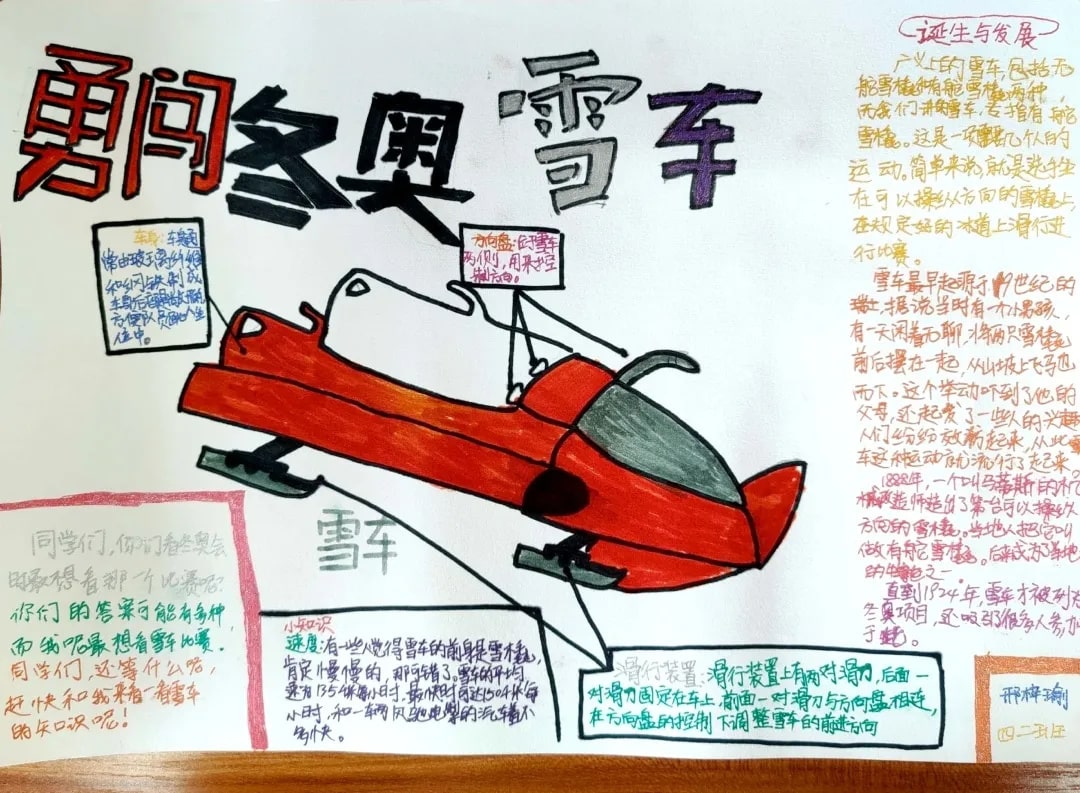 勇闯冬奥雪车
诞生与发展
广义上的雪车,包括无
舵雪橇和有舵雪橇两种,
而我们讲的雪车,专指有舵
雪橇。这是一项几个人的
运动。简单来说,就是选手坐
在可以操纵方向的雪橇上,
在规定好的冰道上滑行进
行比赛。
雪车最早起源于19世纪的
瑞士,据说当时有一个小男孩,
有一天闲着无聊,将两只雪橇
前后摆在一起,从山坡上飞驰
而下。这个举动吓到了他的
父母,还起发了一些人的兴趣
人们纷纷效仿起来,从此雪
车这种运动就流行了起来
1888年,一个叫马蒂斯的机
械造师造出了第台可以操纵
方向的雪橇。当地人把它叫
做有舵雪橇。后来成为了当地
的特色之一。
直到1924年,雪车才被列为
冬奥项目,还吸引了很多人参加
于
车身:车身通
常由玻璃纤维
和钢铁制成
车身后
方便队员
位中。
方向盘:在雪车
两侧,用来控
制方向。
雪车
同学们,你们看冬奥会
时最想看那一个比赛呢?
你们的答案可能有多种
而我呢最想看雪车比赛.
同学们,还等什么呢,
赶快和我来看一看雪车
的知识呢!
小知识
速度:有一些人觉得雪车的前身是雪橇,
肯定慢慢的,那可错了。雪车的平均
速有135千米每小时,最快时可达150千米每
小时,和一辆风驰电掣的汽车差不
多快。
滑行装置:滑行装置上有两对滑刀,后面一
对滑刀固定在车上,前面一对滑刀与方向盘相连,
在方向盘的控制下调整雪车的前进方向
邢梓瑜
四二班